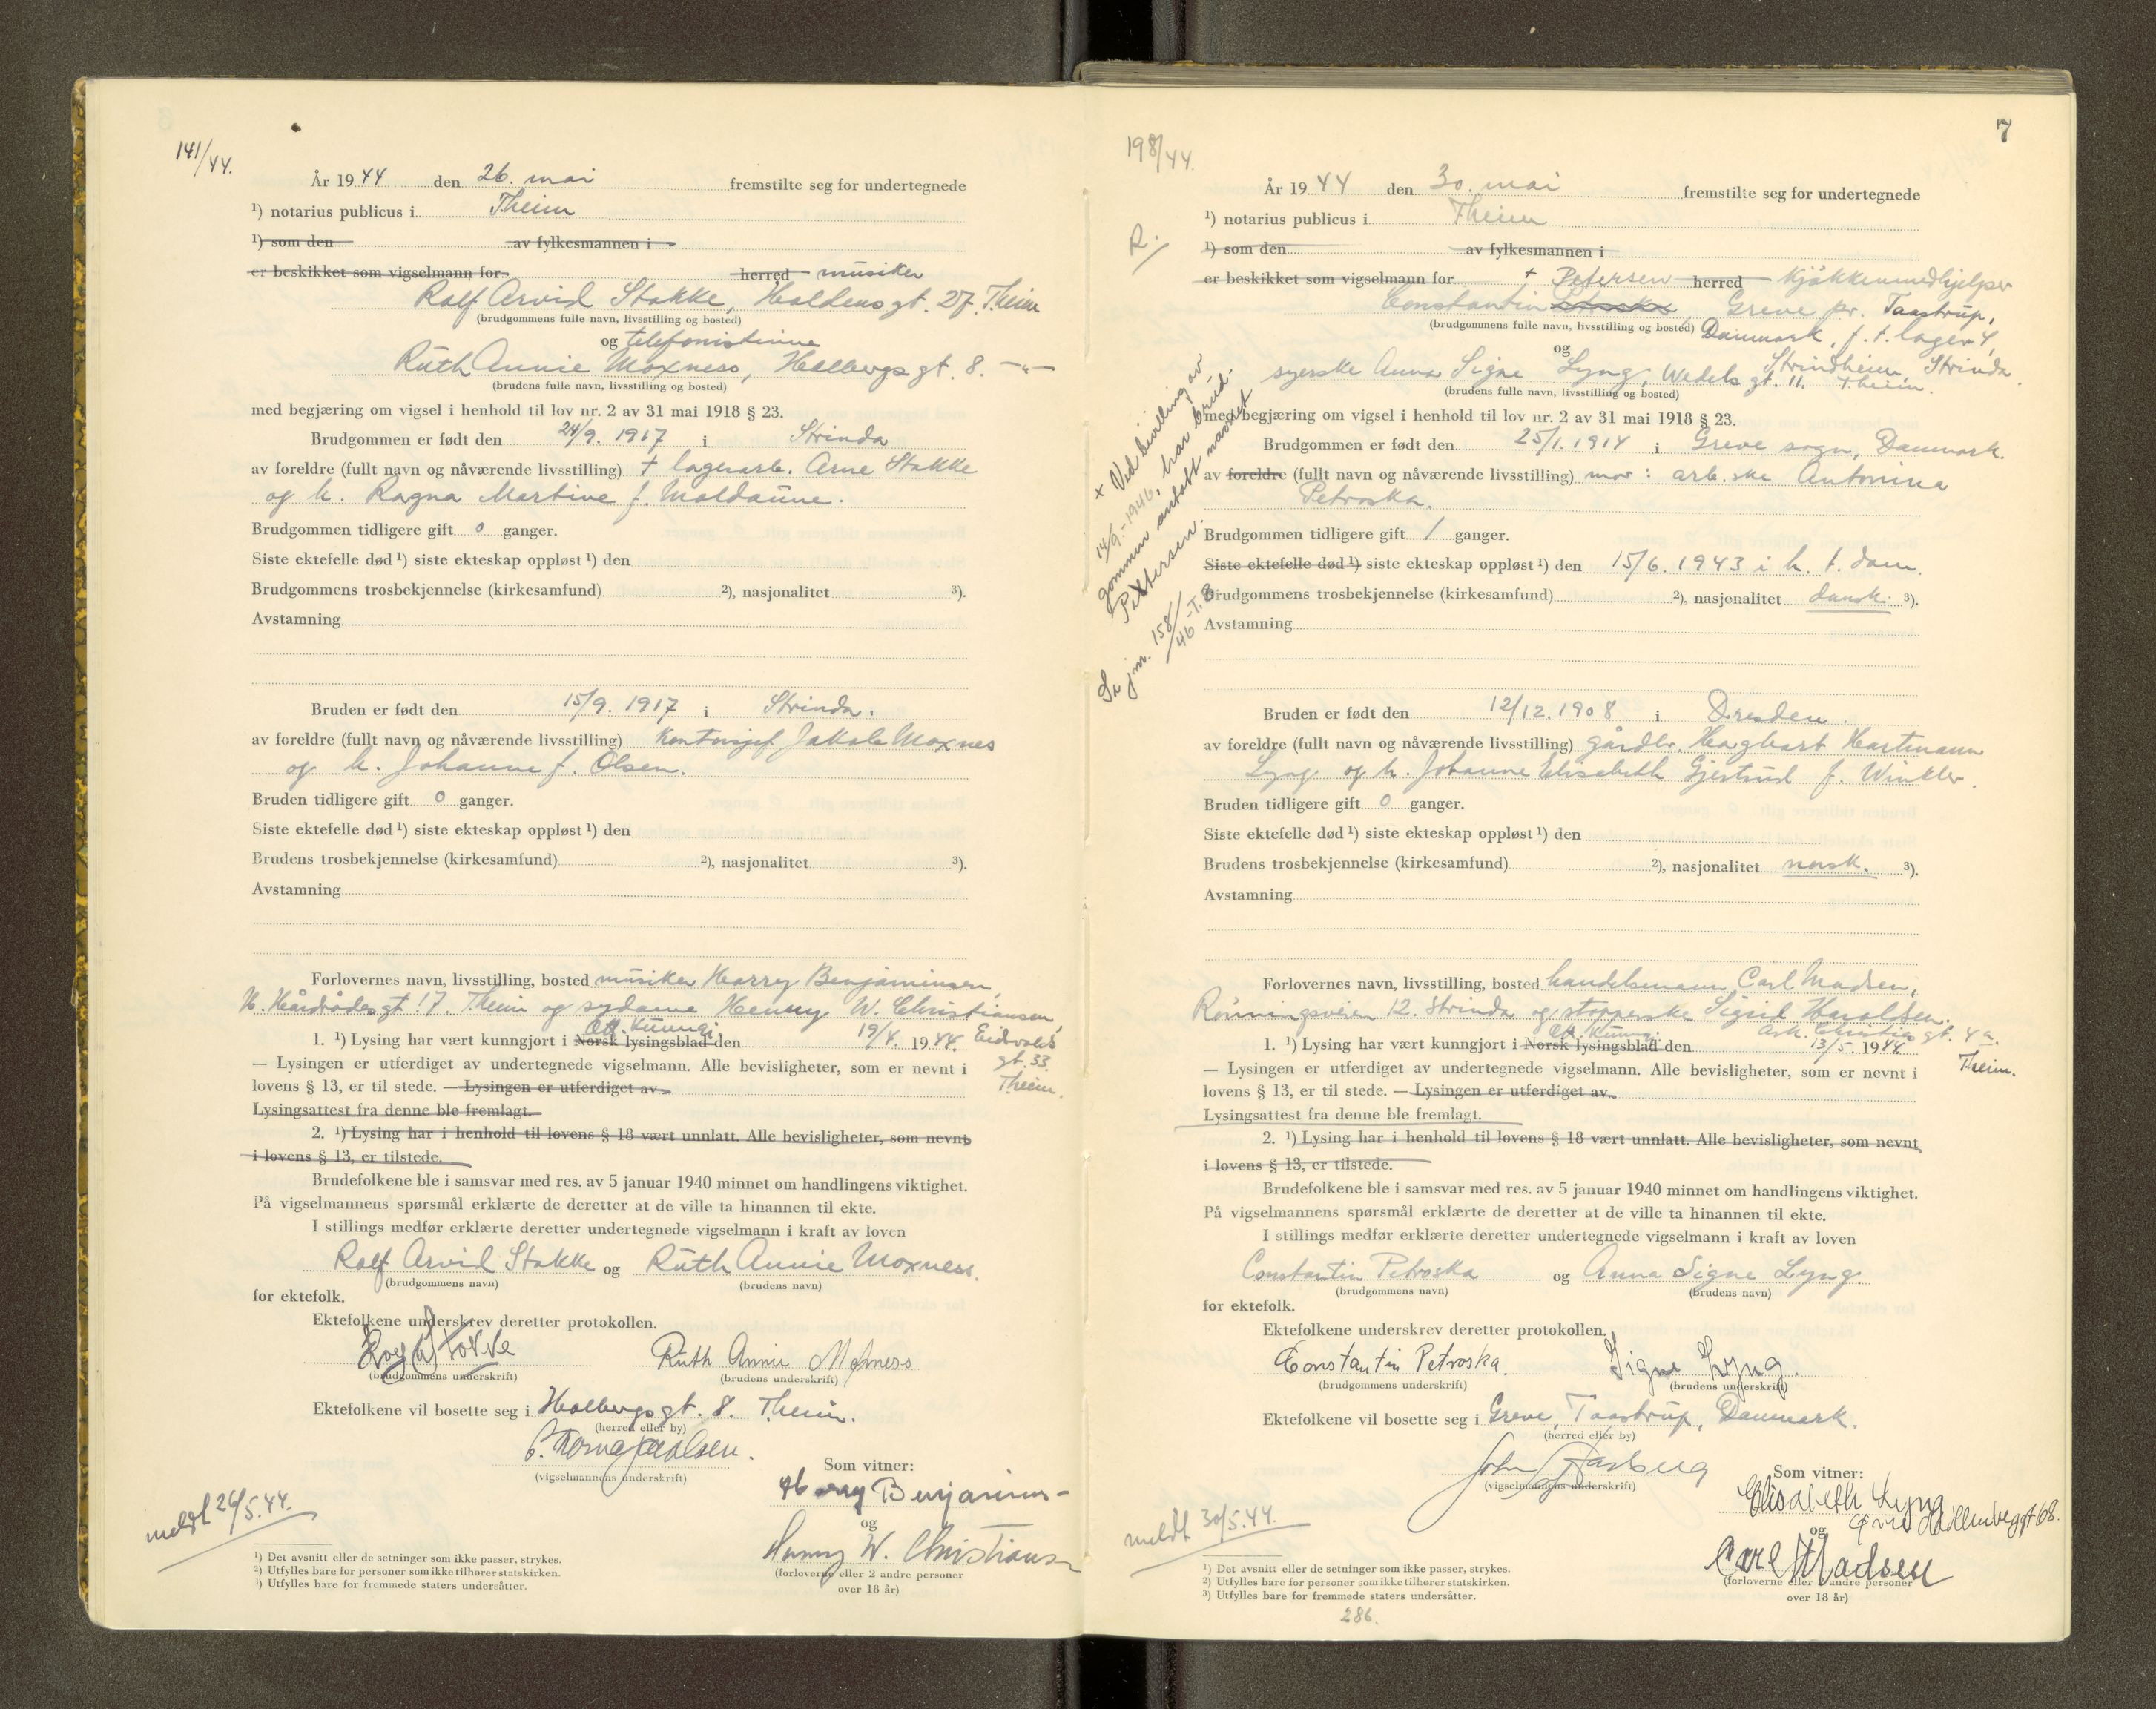 141/44.
År 1944 den 26. mai fremstilte seg for undertegnede
¹) notarius publicus i Theim
¹) som den av fylkesmannen i
er beskikket som vigselmann for herred musiker
Rolf Arvid Stokke, Haldensgt. 27. Theim
(brudgommens fulle navn, livsstilling og bosted)
og telefonistinne
Ruth Annie Moxness, Holbergsgt. 8. -"-
(brudens fulle navn, livsstilling og bosted)
med begjæring om vigsel i henhold til lov nr. 2 av 31 mai 1918 § 23.
Brudgommen er født den 24/9. 1917 i Strinda
av foreldre (fullt navn og nåværende livsstilling) + lagerarb. Arne Stokke
og h. Ragna Martine f. Moldaune.
Brudgommen tidligere gift 0 ganger.
Siste ektefelle død ¹) siste ekteskap oppløst ¹) den
Brudgommens trosbekjennelse (kirkesamfund) ²), nasjonalitet ³).
Avstamning
Bruden er født den 15/9. 1917 i Strinda.
av foreldre (fullt navn og nåværende livsstilling) Kontorsjef Jakob Moxnes
og h. Johanne f. Olsen.
Bruden tidligere gift 0 ganger.
Siste ektefelle død ¹) siste ekteskap oppløst ¹) den
Brudens trosbekjennelse (kirkesamfund) ²), nasjonalitet ³).
Avstamning
Forlovernes navn, livsstilling, bosted musiker Harry Benjaminsen,
H. Hårdrådesgt. 17. Theim og sydame Henny W. Christiansen,
Off. Kunngj.
1. ¹) Lysing har vært kunngjort i Norsk lysingsblad den 19/4. 1944. Eidsvolds
gt. 33.
Theim.
— Lysingen er utferdiget av undertegnede vigselmann. Alle bevisligheter, som er nevnt i
lovens § 13, er til stede. — Lysingen er utferdiget av
Lysingsattest fra denne ble fremlagt.
2. ¹) Lysing har i henhold til lovens § 18 vært unnlatt. Alle bevisligheter, som nevnt
i lovens § 13, er tilstede.
Brudefolkene ble i samsvar med res. av 5 januar 1940 minnet om handlingens viktighet.
På vigselmannens spørsmål erklærte de deretter at de ville ta hinannen til ekte.
I stillings medfør erklærte deretter undertegnede vigselmann i kraft av loven
Rolf Arvid Stokke og Ruth Annie Moxness.
(brudgommens navn) (brudens navn)
for ektefolk.
Ektefolkene underskrev deretter protokollen.
Ruth Annie Moxness
(brudgommens underskrift) (brudens underskrift)
Ektefolkene vil bosette seg i Holbergsgt. 8. Theim.
(herred eller by)
(vigselmannens underskrift)
Som vitner:
Harry Benjamins-
og
Henny W. Christiansen
(forloverne eller 2 andre personer
over 18 år)
meldt 26/5.44.
¹) Det avsnitt eller de setninger som ikke passer, strykes.
²) Utfylles bare for personer som ikke tilhører statskirken.
³) Utfylles bare for fremmede staters undersåtter.
7
198/44.
R.
År 1944 den 30. mai fremstilte seg for undertegnede
¹) notarius publicus i Theim
¹) som den av fylkesmannen i
er beskikket som vigselmann for + Petersen herred Kjøkkenmedhjelper
Constantin Greve pr. Taastrup,
(brudgommens fulle navn, livsstilling og bosted) Danmark, f. t. lager 4,
og Strindheim, Strinda
syerske Anna Signe Lyng, Wedels gt. 11. Theim.
(brudens fulle navn, livsstilling og bosted)
med begjæring om vigsel i henhold til lov nr. 2 av 31 mai 1918 § 23.
Brudgommen er født den 25/1. 1914 i Greve sogn, Danmark.
av foreldre (fullt navn og nåværende livsstilling) mor: arb.ske Antonina
Petroska.
Brudgommen tidligere gift 1 ganger.
Siste ektefelle død ¹) siste ekteskap oppløst ¹) den 15/6. 1943 i h. t. dom.
Brudgommens trosbekjennelse (kirkesamfund) ²), nasjonalitet dansk. ³).
Avstamning
+ Ved bevilling av
14/9.-1946, har brud-
gommen antatt navnet
Petersen.
Se jnr. 158/46-T.B.
Bruden er født den 12/12. 1908 i Dresden.
av foreldre (fullt navn og nåværende livsstilling) gårdbr. Hagbart Hartmann
Lyng og h. Johanne Elisabeth Gjertrud f. Winkler.
Bruden tidligere gift 0 ganger.
Siste ektefelle død ¹) siste ekteskap oppløst ¹) den
Brudens trosbekjennelse (kirkesamfund) ²), nasjonalitet norsk. ³).
Avstamning
Forlovernes navn, livsstilling, bosted handelsmann Carl Madsen,
Rønningsveien 12. Strinda og stopperske Sigrid Haraldsen.
Off. Kunngj. Ark. Christies gt. 4 a.
1. ¹) Lysing har vært kunngjort i Norsk lysingsblad den 13/5. 1944
Theim.
— Lysingen er utferdiget av undertegnede vigselmann. Alle bevisligheter, som er nevnt i
lovens § 13, er til stede. — Lysingen er utferdiget av
Lysingsattest fra denne ble fremlagt.
2. ¹) Lysing har i henhold til lovens § 18 vært unnlatt. Alle bevisligheter, som nevnt
i lovens § 13, er tilstede.
Brudefolkene ble i samsvar med res. av 5 januar 1940 minnet om handlingens viktighet.
På vigselmannens spørsmål erklærte de deretter at de ville ta hinannen til ekte.
I stillings medfør erklærte deretter undertegnede vigselmann i kraft av loven
Constantin Petroska og Anna Signe Lyng.
(brudgommens navn) (brudens navn)
for ektefolk.
Ektefolkene underskrev deretter protokollen.
Constantin Petroska. Signe Lyng.
(brudgommens underskrift) (brudens underskrift)
Ektefolkene vil bosette seg i Greve, Taastrup, Danmark.
(herred eller by)
John Aasberg
(vigselmannens underskrift)
Som vitner:
Elisabeth Lyng
og
Carl Madsen
(forloverne eller 2 andre personer
over 18 år)
meldt 30/5.44.
¹) Det avsnitt eller de setninger som ikke passer, strykes.
²) Utfylles bare for personer som ikke tilhører statskirken.
³) Utfylles bare for fremmede staters undersåtter.
286.